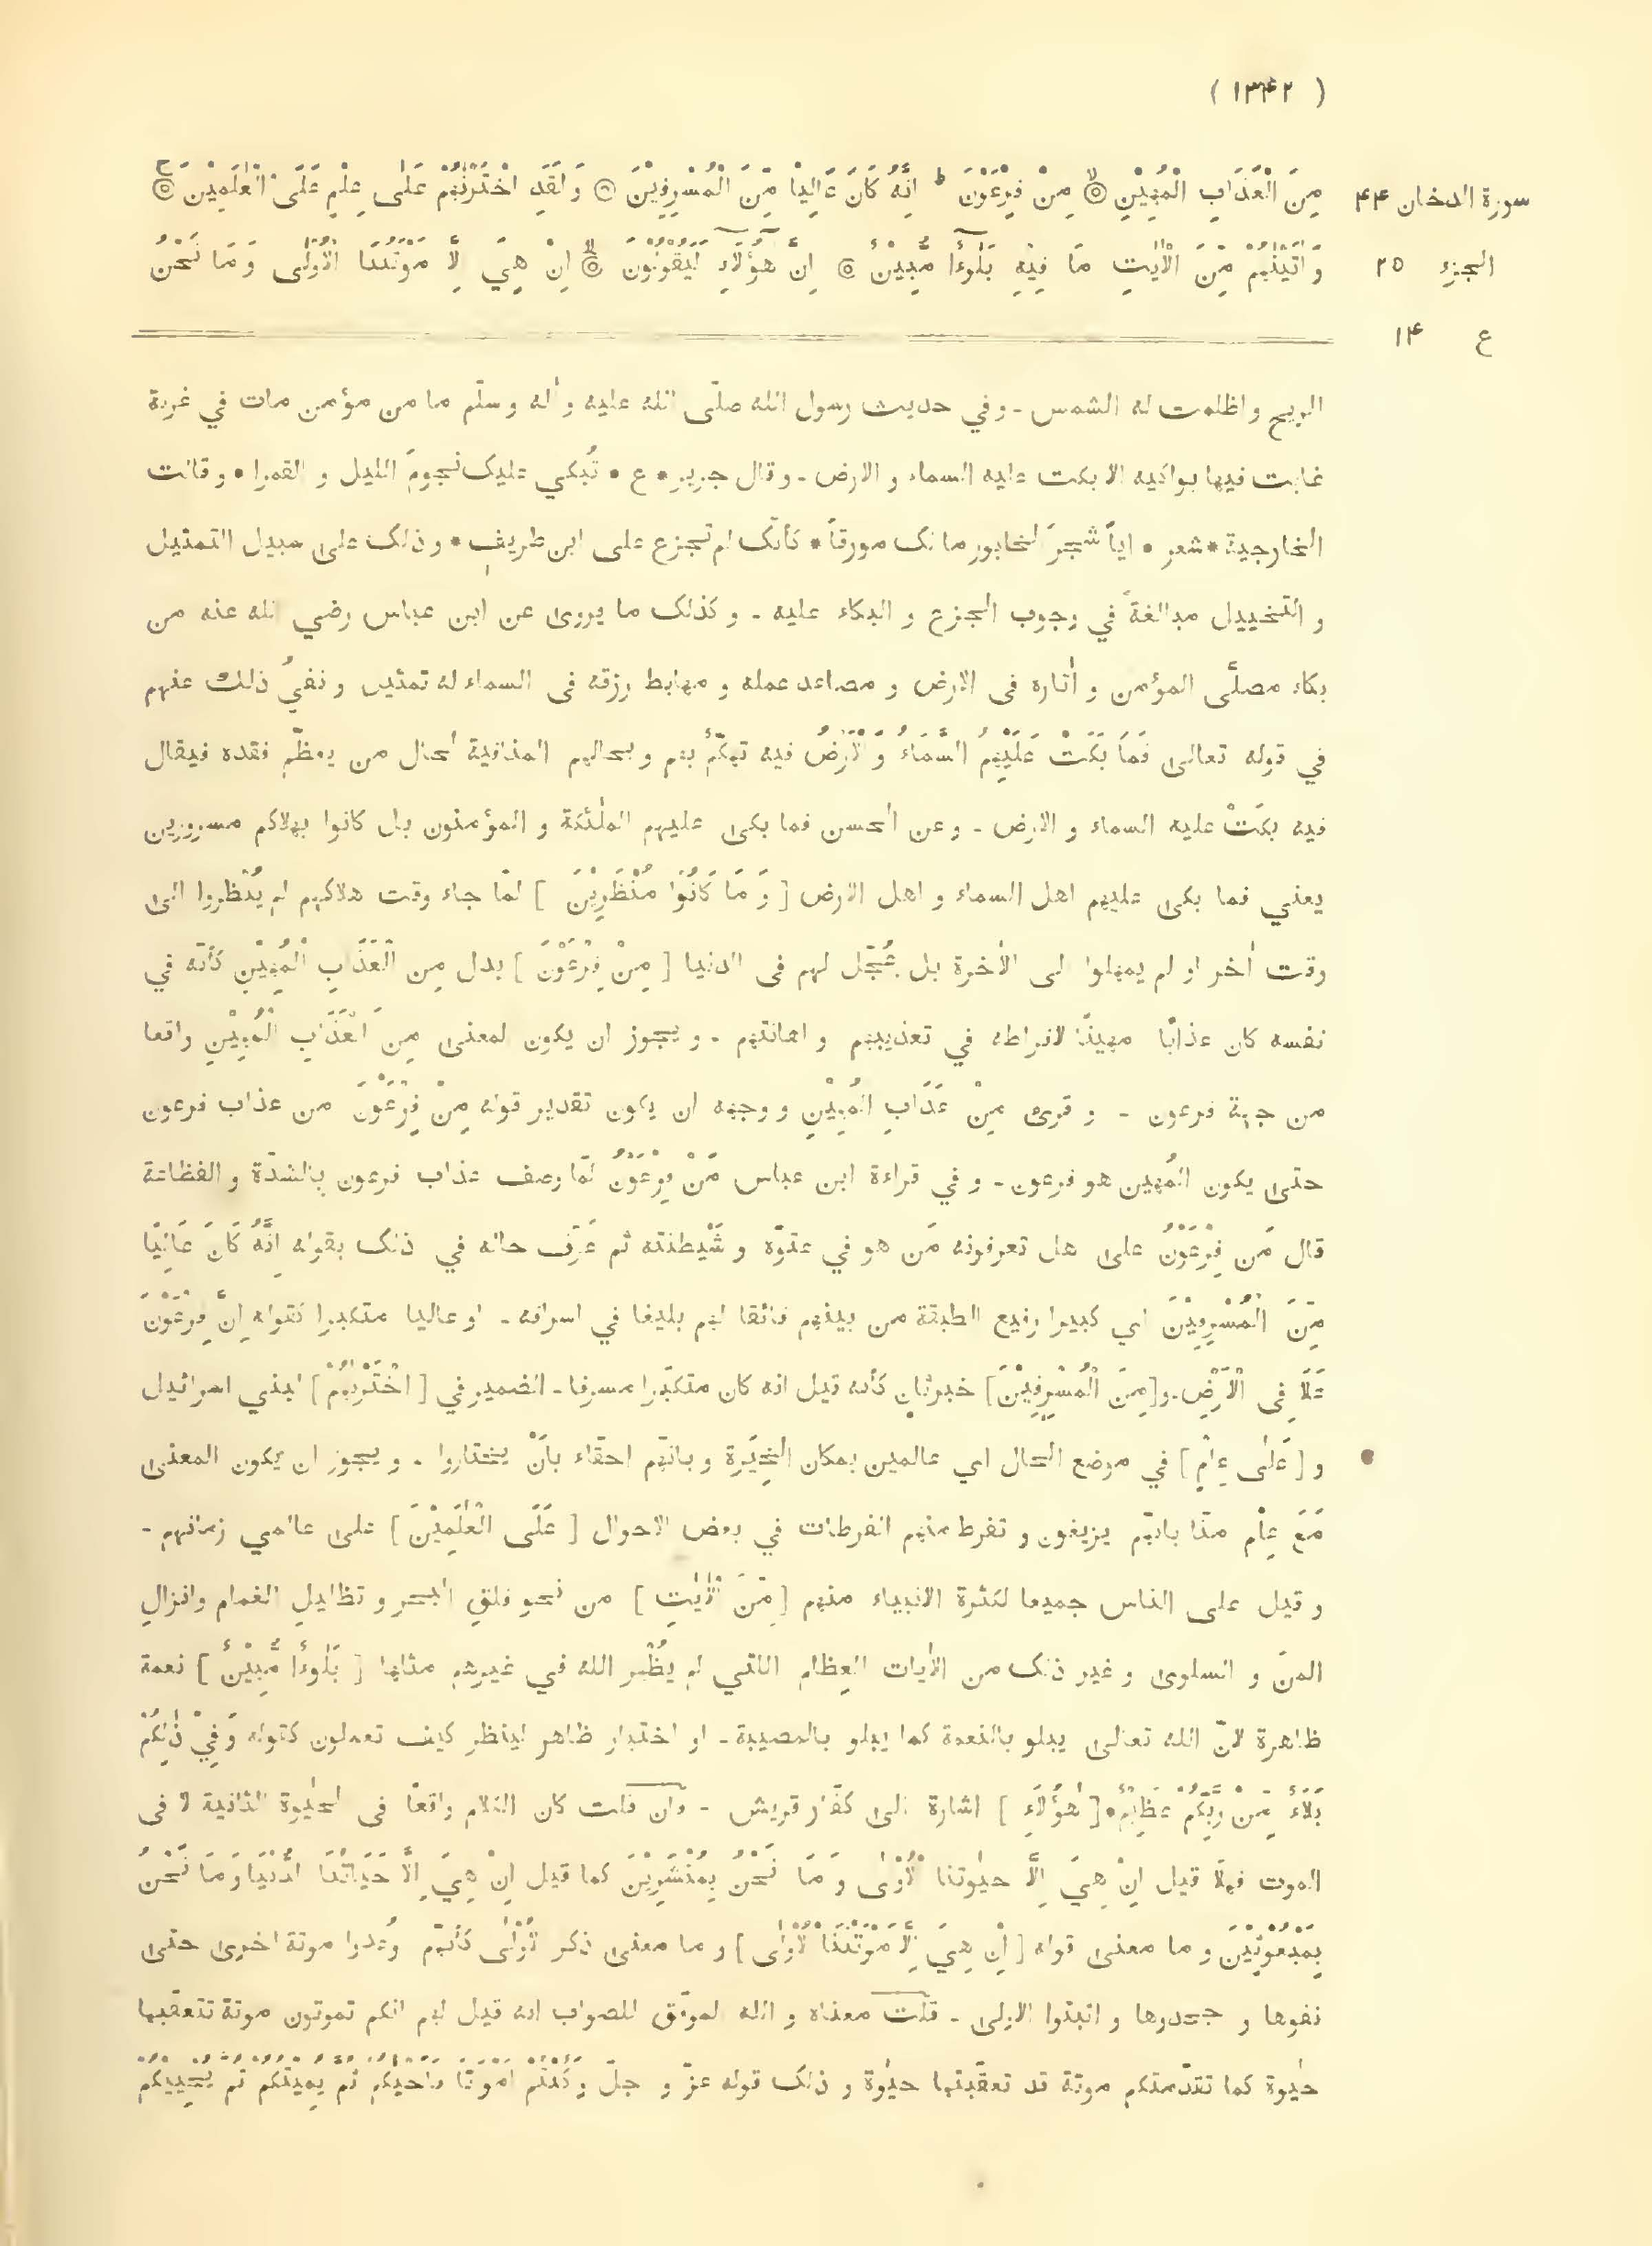 ( ١٣٤٢ )
سورة الدخان ٤٤
الجزء ٢٥
ع ١٤
مِنَ الْعَذَابِ الْمُهِيْنِ ۞ مِنْ فِرْعَوْنَ ط اِنَّهُ كَانَ عَالِيًا مِّنَ الْمُسْرِفِيْنَ ۞ وَ لَقَدِ اخْتَرْنٰهُمْ عَلٰى عِلْمٍ عَلَى الْعٰلَمِيْنَ ج ۞
وَ اٰتَيْنٰهُمْ مِّنَ الْاٰيٰتِ مَا فِيْهِ بَلٰوءٌا مُّبِيْنٌ ۞ اِنَّ هٰٓؤُلَآءِ لَيَقُوْلُوْنَ ۞ اِنْ هِيَ اِلَّا مَوْتَتُنَا الْاُوْلٰى وَ مَا نَحْنُ
الريح و اظلمت له الشمس - وفي حديث رسول الله صلّى الله عليه و اٰله و سلّم ما من مؤمن مات في غربة
غابت فيها بواكيه الا بكت عليه السماء و الارض - و قال جرير * ع * تُبكي عليك نجومَ الليل و القمرا * و قالت
الخارجية * شعر * ايا شجرَ الخابور ما لك مورقاً * كأنّك لم تجزع على ابن طريفِ * و ذلك على سبيل التمثيل
و التخييل مبالغةً في وجوب الجزع و البكاء عليه - و كذلك ما يروى عن ابن عباس رضي الله عنه من
بكاء مصلَّى المؤمن و اٰثاره فى الارض و مصاعد عمله و مهابط رزقه فى السماء له تمثيل و نفيُ ذلك عنهم
في قوله تعالى فَمَا بَكَتْ عَلَيْهِمُ السَّمَاءُ وَ الْاَرْضُ فيه تهكّمٌ بهم و بحالهم المنافية لحال من يعظّم فقده فيقال
فيه بكتْ عليه السماء و الارض - و عن الحسن فما بكى عليهم الملٰئكة و المؤمنون بل كانوا بهلاكهم مسرورين
يعني فما بكى عليهم اهل السماء و اهل الارض [ وَ مَا كَانُوْا مُنْظَرِيْنَ ] لمّا جاء وقت هلاكهم لم يُنْظروا الى
وقت اٰخر او لم يمهلوا الى الاٰخرة بل عُجّل لهم فى الدنيا [ مِنْ فِرْعَوْنَ ] بدل مِن الْعَذَابِ الْمُهِيْنِ كأنّه في
نفسه كان عذابًا مهينًا لافراطه في تعذيبهم و اهانتهم - و يجوز ان يكون المعنى مِنَ الْعَذَابِ الْمُهِيْنِ واقعا
من جهة فرعون - و قرى مِنْ عَذَابِ الْمُهِيْنِ و وجهه ان يكون تقدير قوله مِنْ فِرْعَوْنَ من عذاب فرعون
حتى يكون المُهين هو فرعون - و في قراءة ابن عباس مَنْ فِرْعَوْنُ لمّا وصف عذاب فرعون بالشدّة و الفظاعة
قال مَن فِرْعَوْنُ على هل تعرفونه مَن هو في عتوّه و شَيْطنته ثم عَرّف حاله في ذلك بقوله اِنَّهُ كَانَ عَالِيًا
مِّنَ الْمُسْرِفِيْنَ اي كبيرا رفيع الطبقة من بينهم فائقا لهم بليغا في اسرافه - او عاليا متكبرا كقوله اِنَّ فِرْعَوْنَ
عَلَا فِى الْاَرْضِ - و [ مِنَ الْمُسْرِفِيْنَ ] خبرثانٍ كأنه قيل انه كان متكبّرا مسرفا - الضمير في [ اخْتَرْنٰهُمْ ] لبني اسرائيل
و [ عَلٰى عِلْمٍ ] في موضع الحال اي عالمين بمكان الخِيَرة و بانّهم احقّاء بانْ يختاروا - و يجوز ان يكون المعنى
مَعَ عِلْم منّا بانّهم يزيغون و تفرط منهم الفرطات في بعض الاحوال [ عَلَى الْعٰلَمِيْنَ ] على عالمي زمانهم -
و قيل على الناس جميعا لكثرة الانبياء منهم [ مِّنَ الْاٰيٰتِ ] من نحو فلقِ البحر و تظليلِ الغمام و انزالِ
المنّ و السلوى و غير ذلك من الاٰيات العِظام اللتي لم يُظْهر الله في غيرهم مثلها [ بَلٰوءٌا مُّبِيْنٌ ] نعمة
ظاهرة لانّ الله تعالى يبلو بالنعمة كما يبلو بالمصيبة - او اختبار ظاهر لينظر كيف تعملون كقوله وَ فِيْ ذٰلِكُمْ
بَلَاءٌ مِّنْ رَبِّكُمْ عَظِيْمٌ * [ هٰؤُلَاءِ ] اشارة الى كفّار قريش - فان قلت كان الكلام واقعًا فى الحيٰوة الثانية لا فى
الموت فهلّا قيل اِنْ هِيَ اِلَّا حيٰوتنا الْاُوْلٰى وَ مَا نَحْنُ بِمُنْشَرِيْنَ كما قيل اِنْ هِيَ اِلَّا حَيَاتُنَا الدُّنْيَا وَ مَا نَحْنُ
بِمَبْعُوْثِيْنَ و ما معنى قوله [ اِنْ هِيَ اِلَّا مَوْتَتُنَا الْاُوْلٰى ] و ما معنى ذكر الْاُوْلٰى كأنّهم وُعدوا موتة اخرى حتى
نفوها و جحدوها و اثبتوا الاولى - قلت معناه و الله الموفّق للصواب انه قيل لهم انكم تموتون موتة تتعقّبها
حيٰوة كما تقدّمتكم موتة قد تعقّبتها حيٰوة و ذلك قوله عزّ و جلّ وَ كُنْتُمْ اَمْوَاتًا فَاَحْيَاكُمْ ثُمَّ يُمِيْتُكُمْ ثُمَّ يُحْيِيْكُمْ